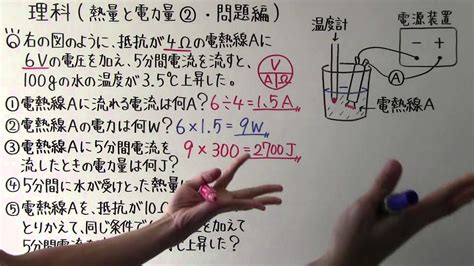 理科(熱量と電力量②・問題編)
⑥右の図のように、抵抗が4Ωの電熱線Aに
6Vの電圧を加え、5分間電流を流すと、
100gの水の温度が3.5℃上昇した。
①電熱線Aに流れる電流は何A? 6÷4=1.5A
②電熱線Aの電力は何W? 6×1.5=9W
③電熱線Aに5分間電流を
流したときの電力量は何J? 9×300=2700J
④5分間に水が受けとった熱量
⑤電熱線Aを、抵抗が10.
とりかえて、同じ条件で
を加えて
5分間電流を
上昇した?
V
A Ω
温度計
電源装置
- +
A
電熱線A